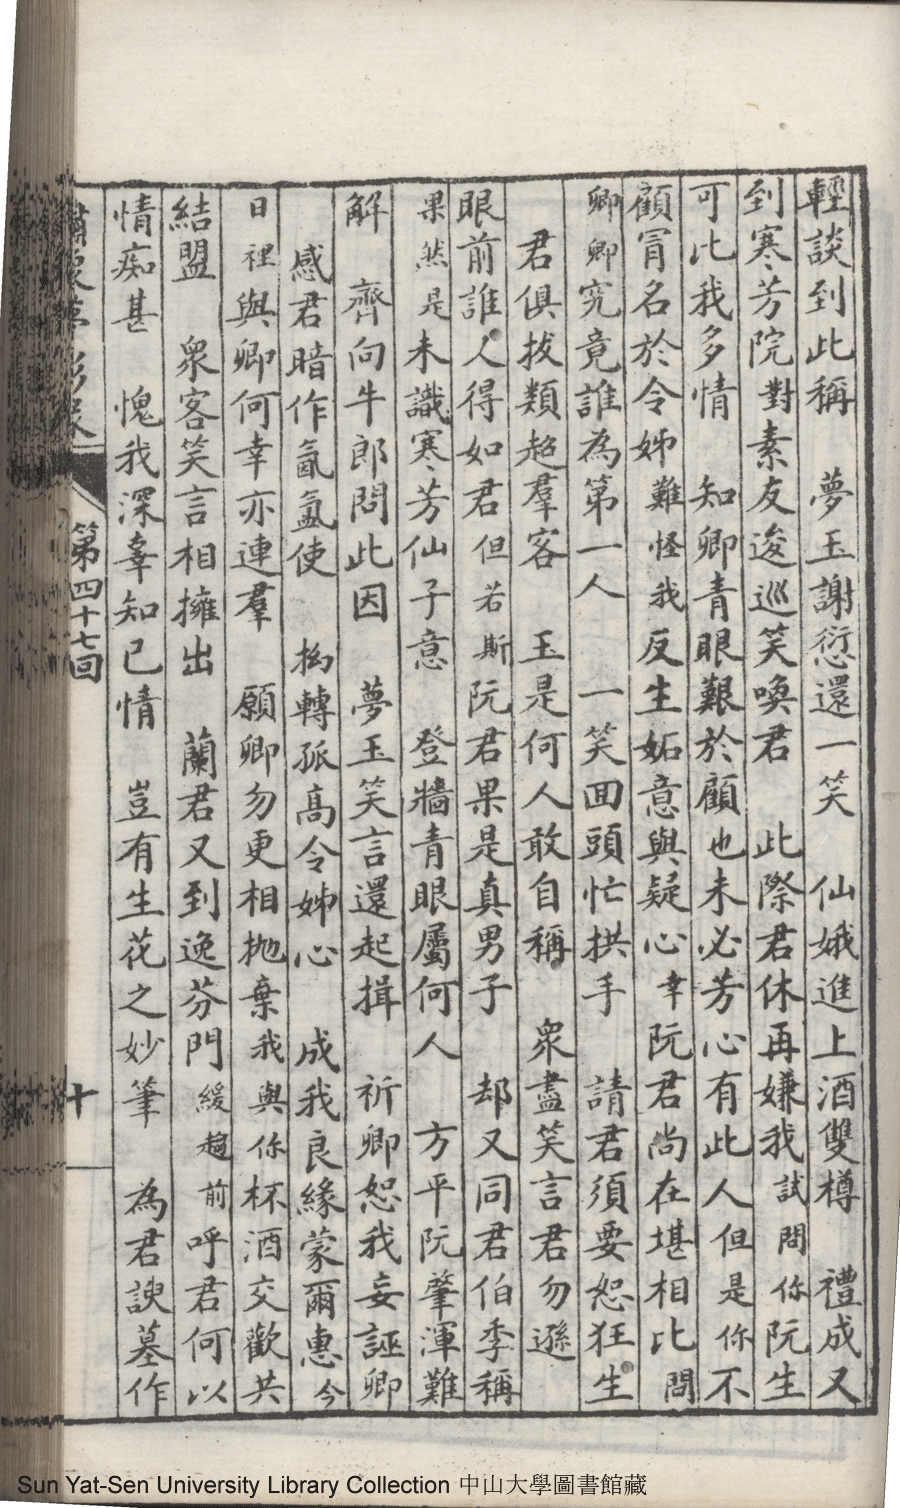 輕談到此稱　夢玉謝愆還一笑　仙娥進上酒雙樽　禮成又
到寒芳院對素友逡巡笑喚君　此際君休再嫌我試問你阮生
可比我多情　知卿青眼艱於顧也未必芳心有此人但是你不
顧冒名於令姊難怪我反生妬意與疑心幸阮君尚在堪相比問
卿卿究竟誰為第一人　一笑回頭忙拱手　請君須要恕狂生
君俱拔類超羣客　玉是何人敢自稱　眾盡笑言君勿遜
眼前誰人得如君但若斯阮君果是真男子　却又同君伯季稱
果然是未識寒芳仙子意　登牆青眼屬何人　方平阮肇渾難
解　齊向牛郎問此因　夢玉笑言還起揖　祈卿恕我妄誣卿
感君暗作氤氳使　拗轉孤高令姊心　成我良緣蒙爾惠今
日裡與卿何幸亦連羣　願卿勿更相拋棄我與你杯酒交歡共
結盟　眾客笑言相擁出　蘭君又到逸芬門緩趨前呼君何以
情痴甚　愧我深辜知已情　豈有生花之妙筆　為君諛墓作
第四十七回
十
Sun Yat-Sen University Library Collection 中山大學圖書館藏